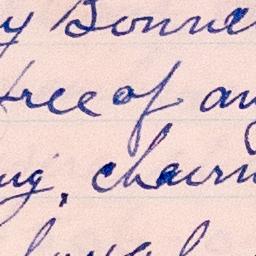 y Bonne
free of an
ng, chairm